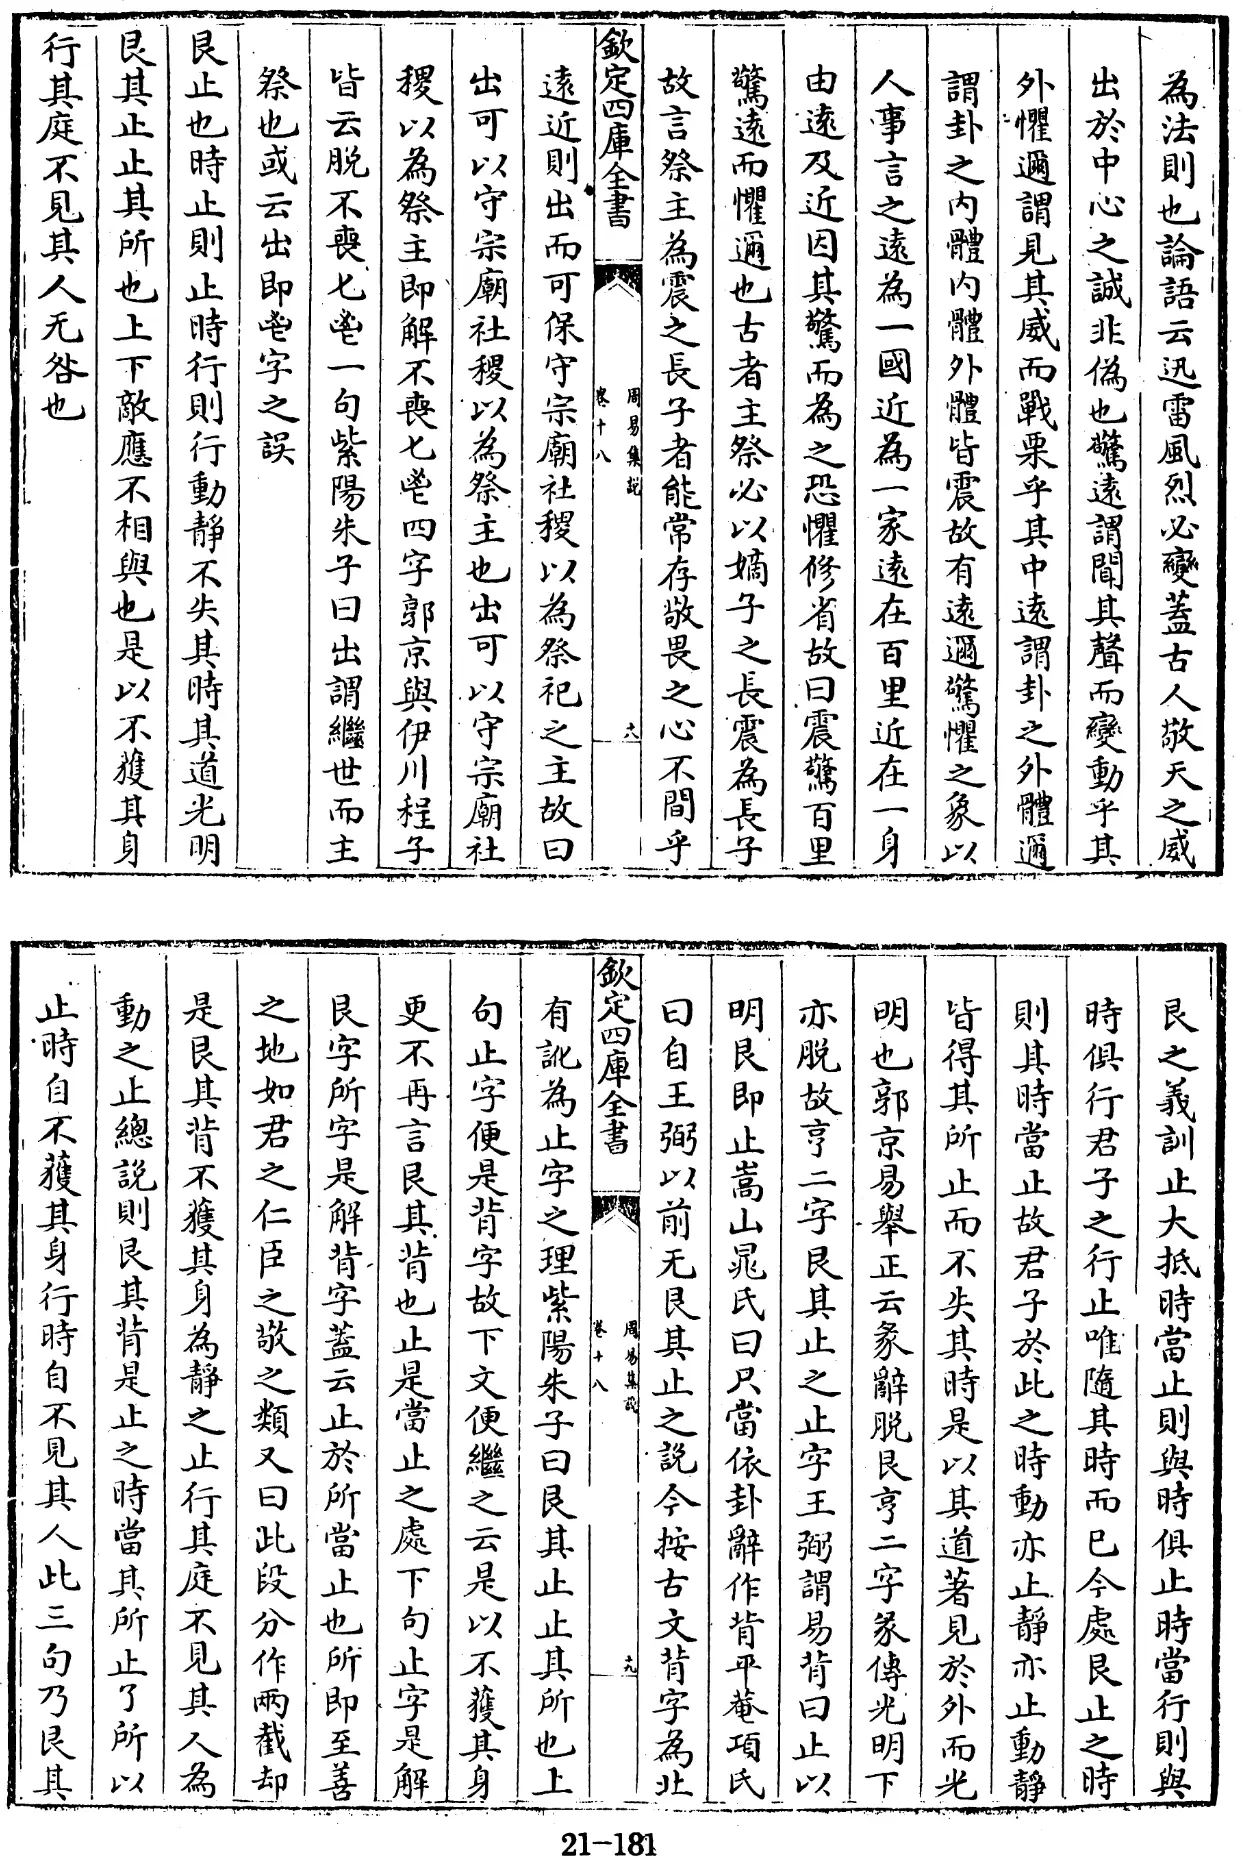 為法則也論語云迅雷風烈必變蓋古人敬天之威
出於中心之誠非偽也驚遠謂聞其聲而變動乎其
外懼邇謂見其威而戰栗乎其中遠謂卦之外體邇
謂卦之内體内體外體皆震故有遠邇驚懼之象以
人事言之遠為一國近為一家遠在百里近在一身
由遠及近因其驚而為之恐懼修省故曰震驚百里
驚遠而懼邇也古者主祭必以嫡子之長震為長子
故言祭主為震之長子者能常存敬畏之心不間乎
欽定四庫全書
周易集説
卷十八
十八
遠近則出而可保守宗廟社稷以為祭祀之主故曰
出可以守宗廟社稷以為祭主也出可以守宗廟社
稷以為祭主即解不喪匕鬯四字郭京與伊川程子
皆云脱不喪匕鬯一句紫陽朱子曰出謂繼世而主
祭也或云出即鬯字之誤
艮止也時止則止時行則行動靜不失其時其道光明
艮其止止其所也上下敵應不相與也是以不獲其身
行其庭不見其人无咎也
艮之義訓止大抵時當止則與時俱止時當行則與
時俱行君子之行止唯隨其時而已今處艮止之時
則其時當止故君子於此之時動亦止靜亦止動靜
皆得其所止而不失其時是以其道著見於外而光
明也郭京易舉正云彖辭脱艮亨二字彖傳光明下
亦脱故亨二字艮其止之止字王弼謂易背曰止以
明艮即止嵩山晁氏曰只當依卦辭作背平菴項氏
曰自王弼以前无艮其止之説今按古文背字為北
欽定四庫全書
周易集説
卷十八
十九
有訛為止字之理紫陽朱子曰艮其止止其所也上
句止字便是背字故下文便繼之云是以不獲其身
更不再言艮其背也止是當止之處下句止字是解
艮字所字是解背字蓋云止於所當止也所即至善
之地如君之仁臣之敬之類又曰此段分作兩截却
是艮其背不獲其身為靜之止行其庭不見其人為
動之止總説則艮其背是止之時當其所止了所以
止時自不獲其身行時自不見其人此三句乃艮其
21-181